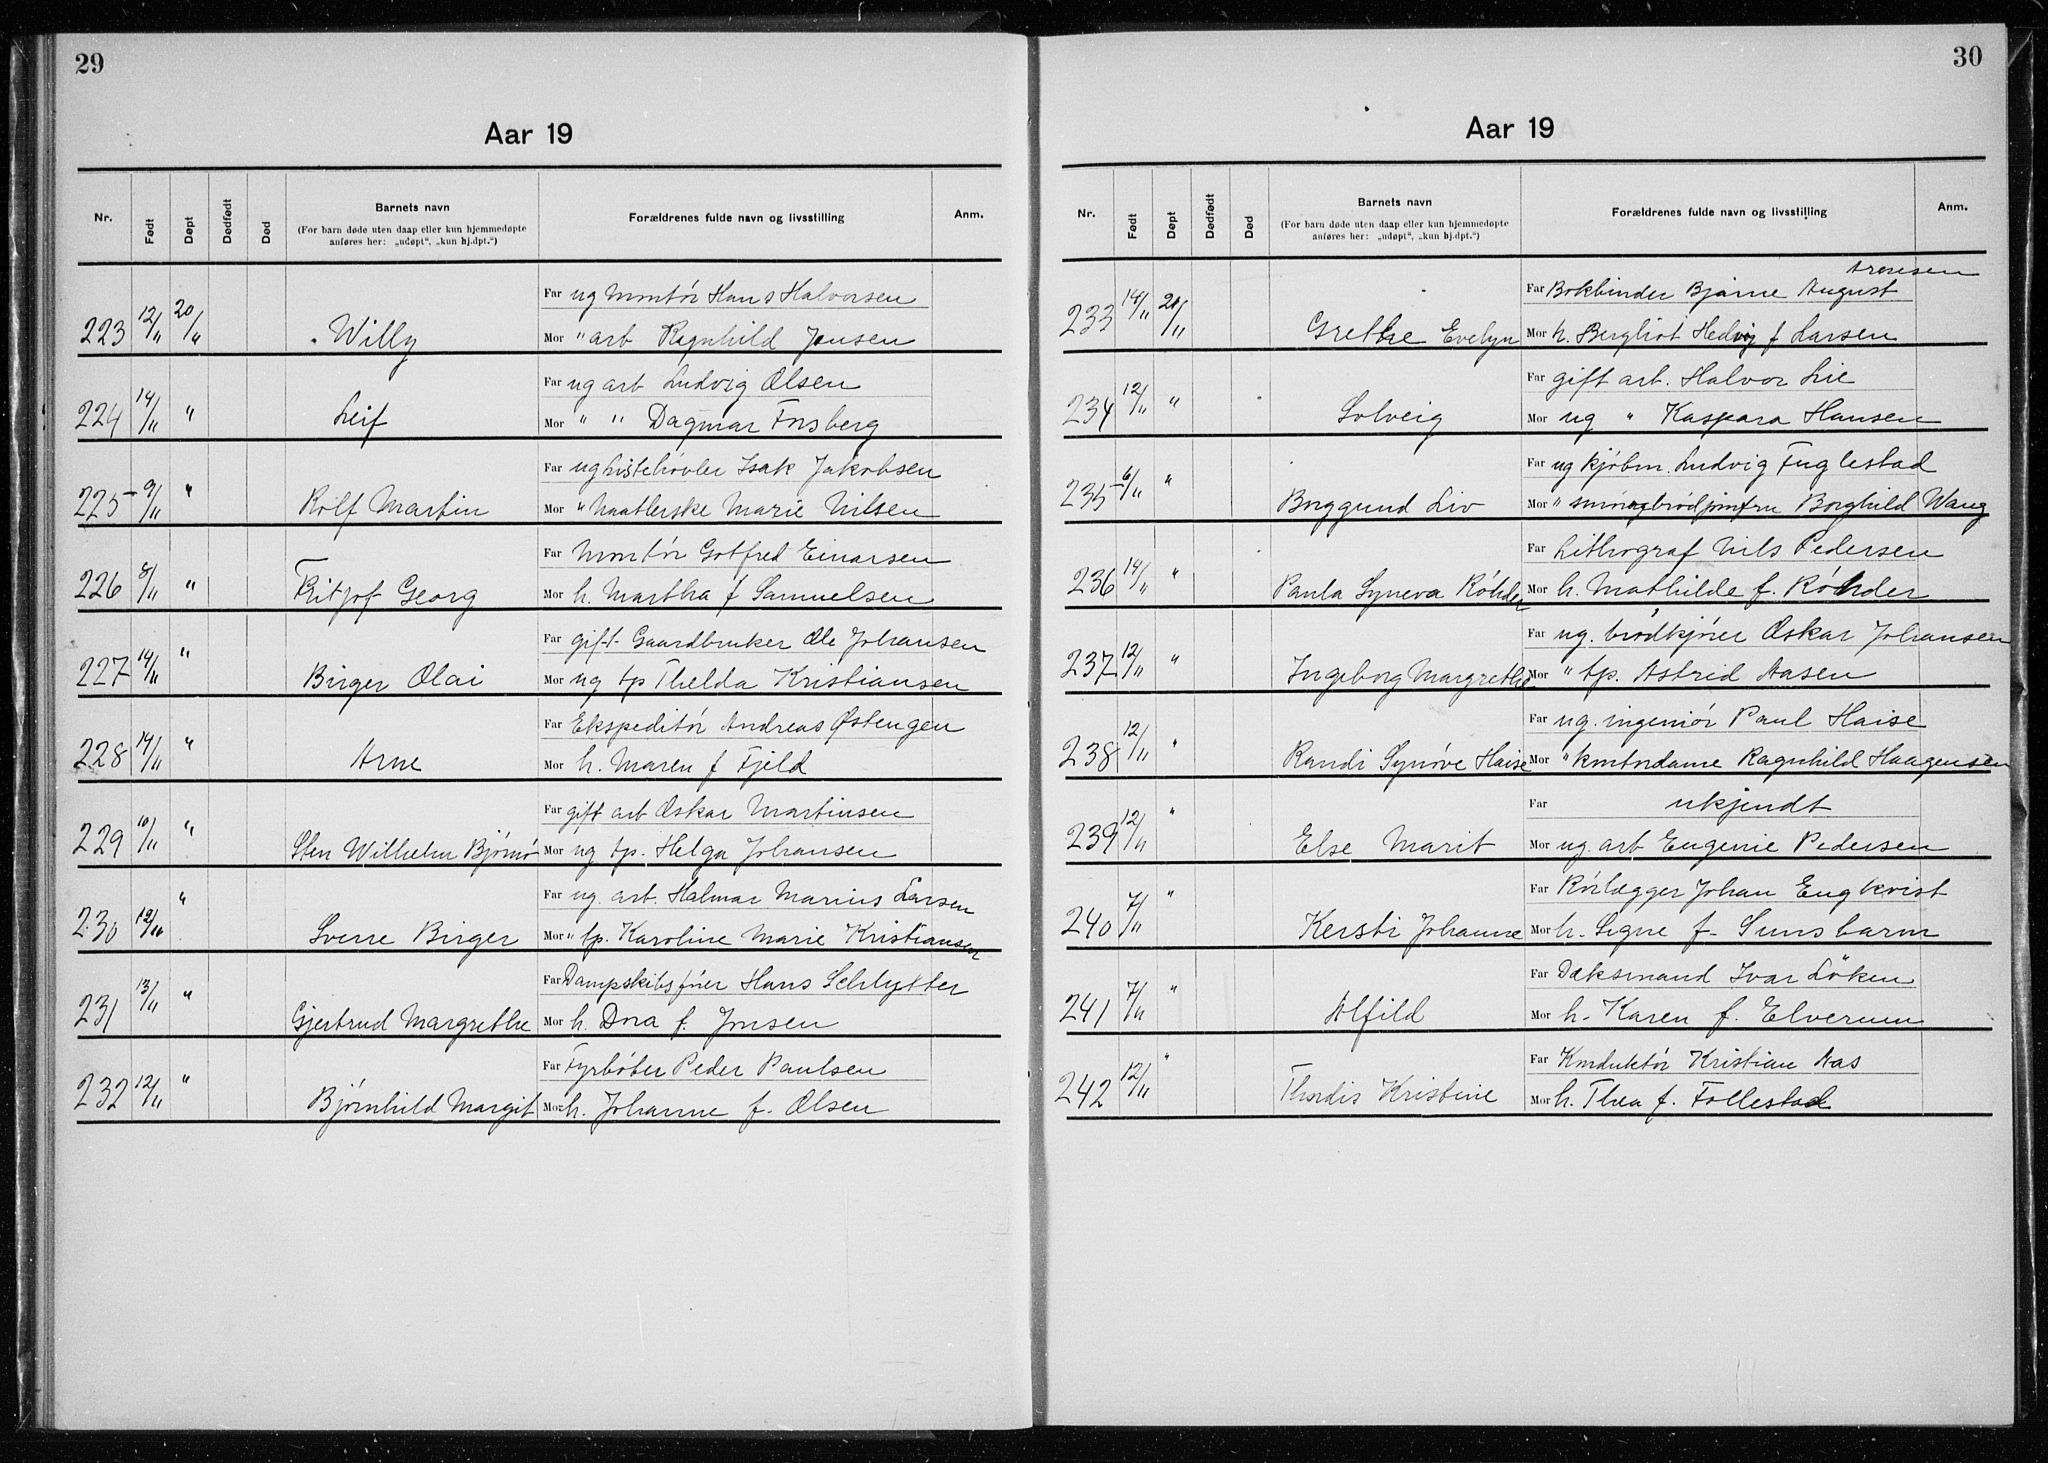 29
Aar 19
Nr. Født Døpt Dødfødt Død Barnets navn Forældrenes fulde navn og livsstilling Anm.
(For barn døde uten daap eller kun hjemmedøpte
anføres her: „udøpt“, „kun hj.dpt.“)
Far ug montør Hans Halvorsen
223 12/11 20/11 Willy Mor " arb Ragnhild Jensen
Far ug arb Ludvig Olsen
224 14/11 " Leif Mor " " Dagmar Forsberg
Far ug Listehøvler Isak Jakobsen
225 9/11 " Rolf Martin Mor " Maatlerske Marie Nilsen
Far Montør Gotfred Einarsen
226 8/11 " Fritjof Georg Mor h. Martha f Samuelsen
Far gift Gaardbruker Ole Johansen
227 14/11 " Birger Olai Mor ug tp Thelda Kristiansen
Far Ekspeditør Andreas Østengen
228 14/11 " Arne Mor h. Maren f Fjeld
Far gift arb Oskar Martinsen
229 10/11 " Sten Wilhelm Mor ug tp. Helga Johansen
Far ug. arb. Halmar Marius Larsen
230 12/10 " Sverre Birger Mor " tp. Karoline Marie Kristiansen
Far Dampskibsfører Hans Schlytter
231 13/11 " Gjertrud Margrethe Mor h. Dora f. Jonsen
Far Fyrbøter Peder Paulsen
232 12/11 " Bjørnhild Margit Mor h. Johanne f. Olsen
30
Aar 19
Nr. Født Døpt Dødfødt Død Barnets navn Forældrenes fulde navn og livsstilling Anm.
(For barn døde uten daap eller kun hjemmedøpte
anføres her: „udøpt“, „kun hj.dpt.“)
Arnesen
Far Bokbinder Bjarne August
233 14/11 20/11 Grethe Evelyn Mor h. Bergliot Hedvig f Larsen
Far gift arb. Halvor Lie
234 12/11 " Solveig Mor ug " Kaspara Hansen
Far ug kjøbm. Ludvig Fuglestad
235 6/11 " Borggund Liv Mor " smørrebrødjomfru Borghild Wang
Far Lithograf Nils Pedersen
236 14/11 " Paula Syneva Röhder Mor h. Mathilde f. Röhder
Far ug. brødkjører Oskar Johansen
237 12/11 " Ingeborg Margrethe Mor " tp. Astrid Aasen
Far ug. ingeniør Paul Haise
238 12/11 " Randi Synøve Haise Mor " kontordame Ragnhild Haagensen
Far ukjendt
239 12/11 " Else Marit Mor ug. arb Eugenie Pedersen
Far Rørlægger Johan Engkvist
240 7/11 " Kersti Johanne Mor h. Signe f. Sunsbarm
Far Dæksmand Ivar Löken
241 7/11 " Alfild Mor h. Karen f. Elverum
Far Konduktør Kristian Aas
242 12/11 " Thordis Kristine Mor h. Thea f. Follestad